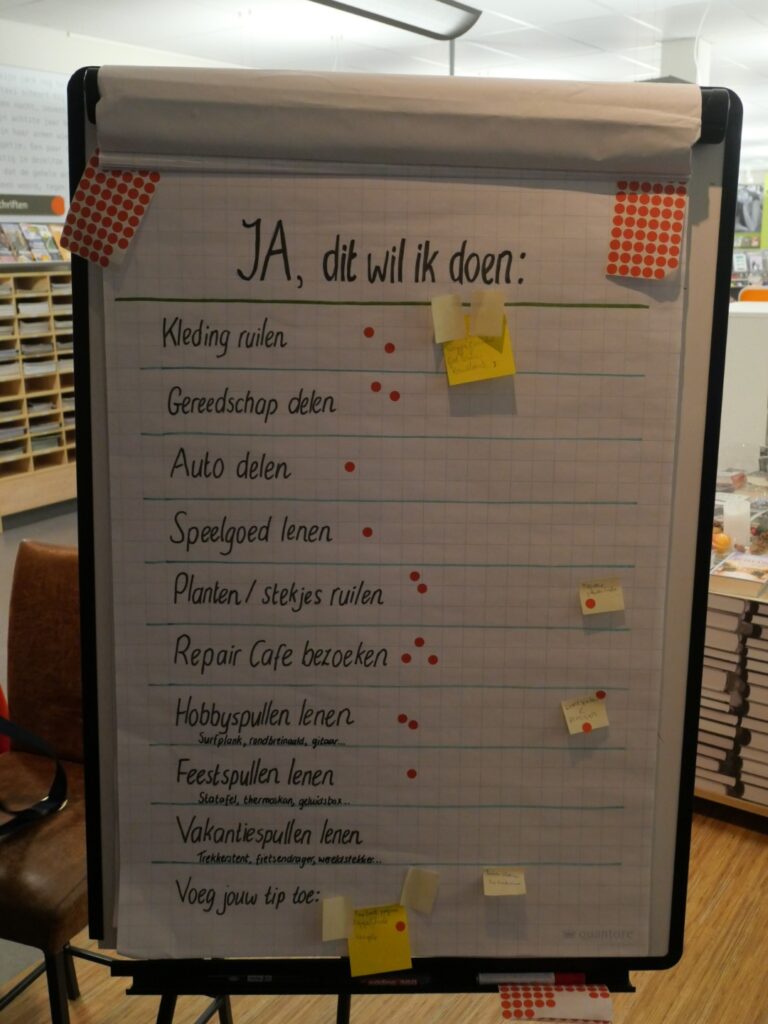 chriften
JA, dit wil ik doen:
Kleding ruilen
Gereedschap delen
Auto delen
Speelgoed lenen
Planten / stekjes ruilen
Repair Cafe bezoeken
Hobbyspullen lenen
Surfplank, rondbreinaald, gitaar...
Feestspullen lenen
Statafel, thermoskan, geluidsbox...
Vakantiespullen lenen
Trekkerstent, fietsendrager, wereldstekker...
Voeg jouw tip toe:
quantore